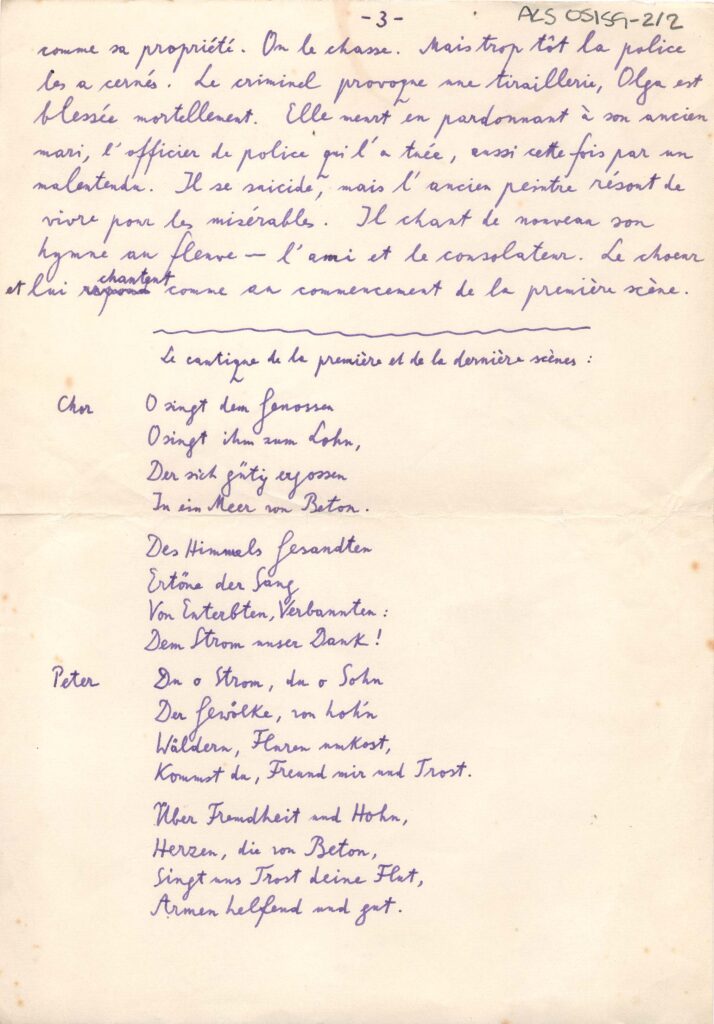 -3-
ALS 05159-2/2
comme sa propriété. On le chasse. Mais trop tôt la police
les a cernés. Le criminel provoque une tiraillerie, Olga est
blessée mortellement. Elle meurt en pardonnant à son ancien
mari, l'officier de police qui l'a tuée, aussi cette fois par un
malentendu. Il se suicide, mais l'ancien peintre résout de
vivre pour les misérables. Il chant de nouveau son
hymne au fleuve — l'ami et le consolateur. Le choeur
et lui chantent comme au commencement de la première scène.
Le cantique de la première et de la dernière scènes :
Chor O singt dem Genossen
O singt ihm zum Lohn,
Der sich gütig ergossen
In ein Meer von Beton.
Des Himmels Gesandten
Ertöne der Sang
Von Enterbten, Verbannten :
Dem Strom unser Dank !
Peter Du o Strom, du o Sohn
Der Gewölke, von hoh'n
Wäldern, Fluren umkost,
Kommst du, Freund mir und Trost.
Über Fremdheit und Hohn,
Herzen, die von Beton,
Singt uns Trost deine Flut,
Armen helfend und gut.